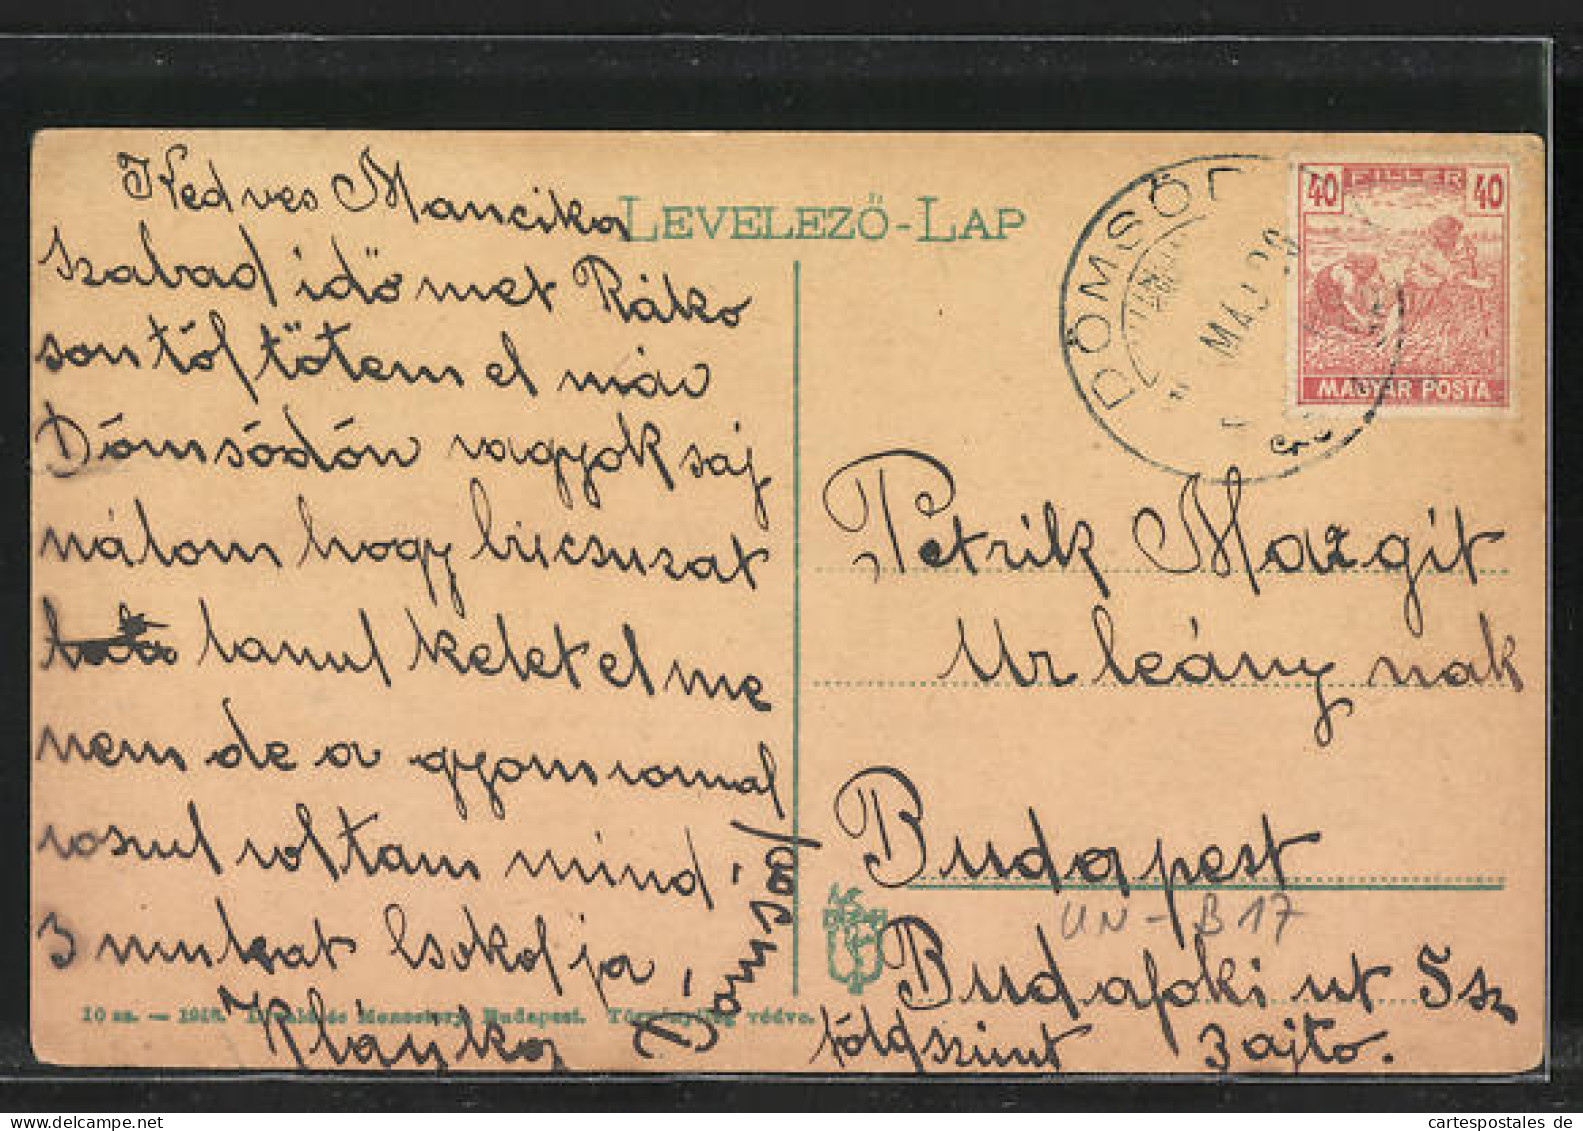 Kedves Mancika
szabad időmet Rátko
son tól tötem el máv
Dómsódón vagyok saj
nálom hogy bucsuzat
lanul kelet el me
nem de a gyomromal
rosul voltam mind
3 nunkat Csokolja
Klárika
Dómsód
LEVELEZŐ-LAP
DÖMSÖD
MAJ 20
40 FILLER 40
MAGYAR POSTA
Petrik Mazgit
Urleány nak
Budapest
UN-B17
Budafoki ut 5 sz
földszint 3 ajto.
10 sz. — 1918. Monostory, Budapest. Törvényileg védve.
cartespostales de